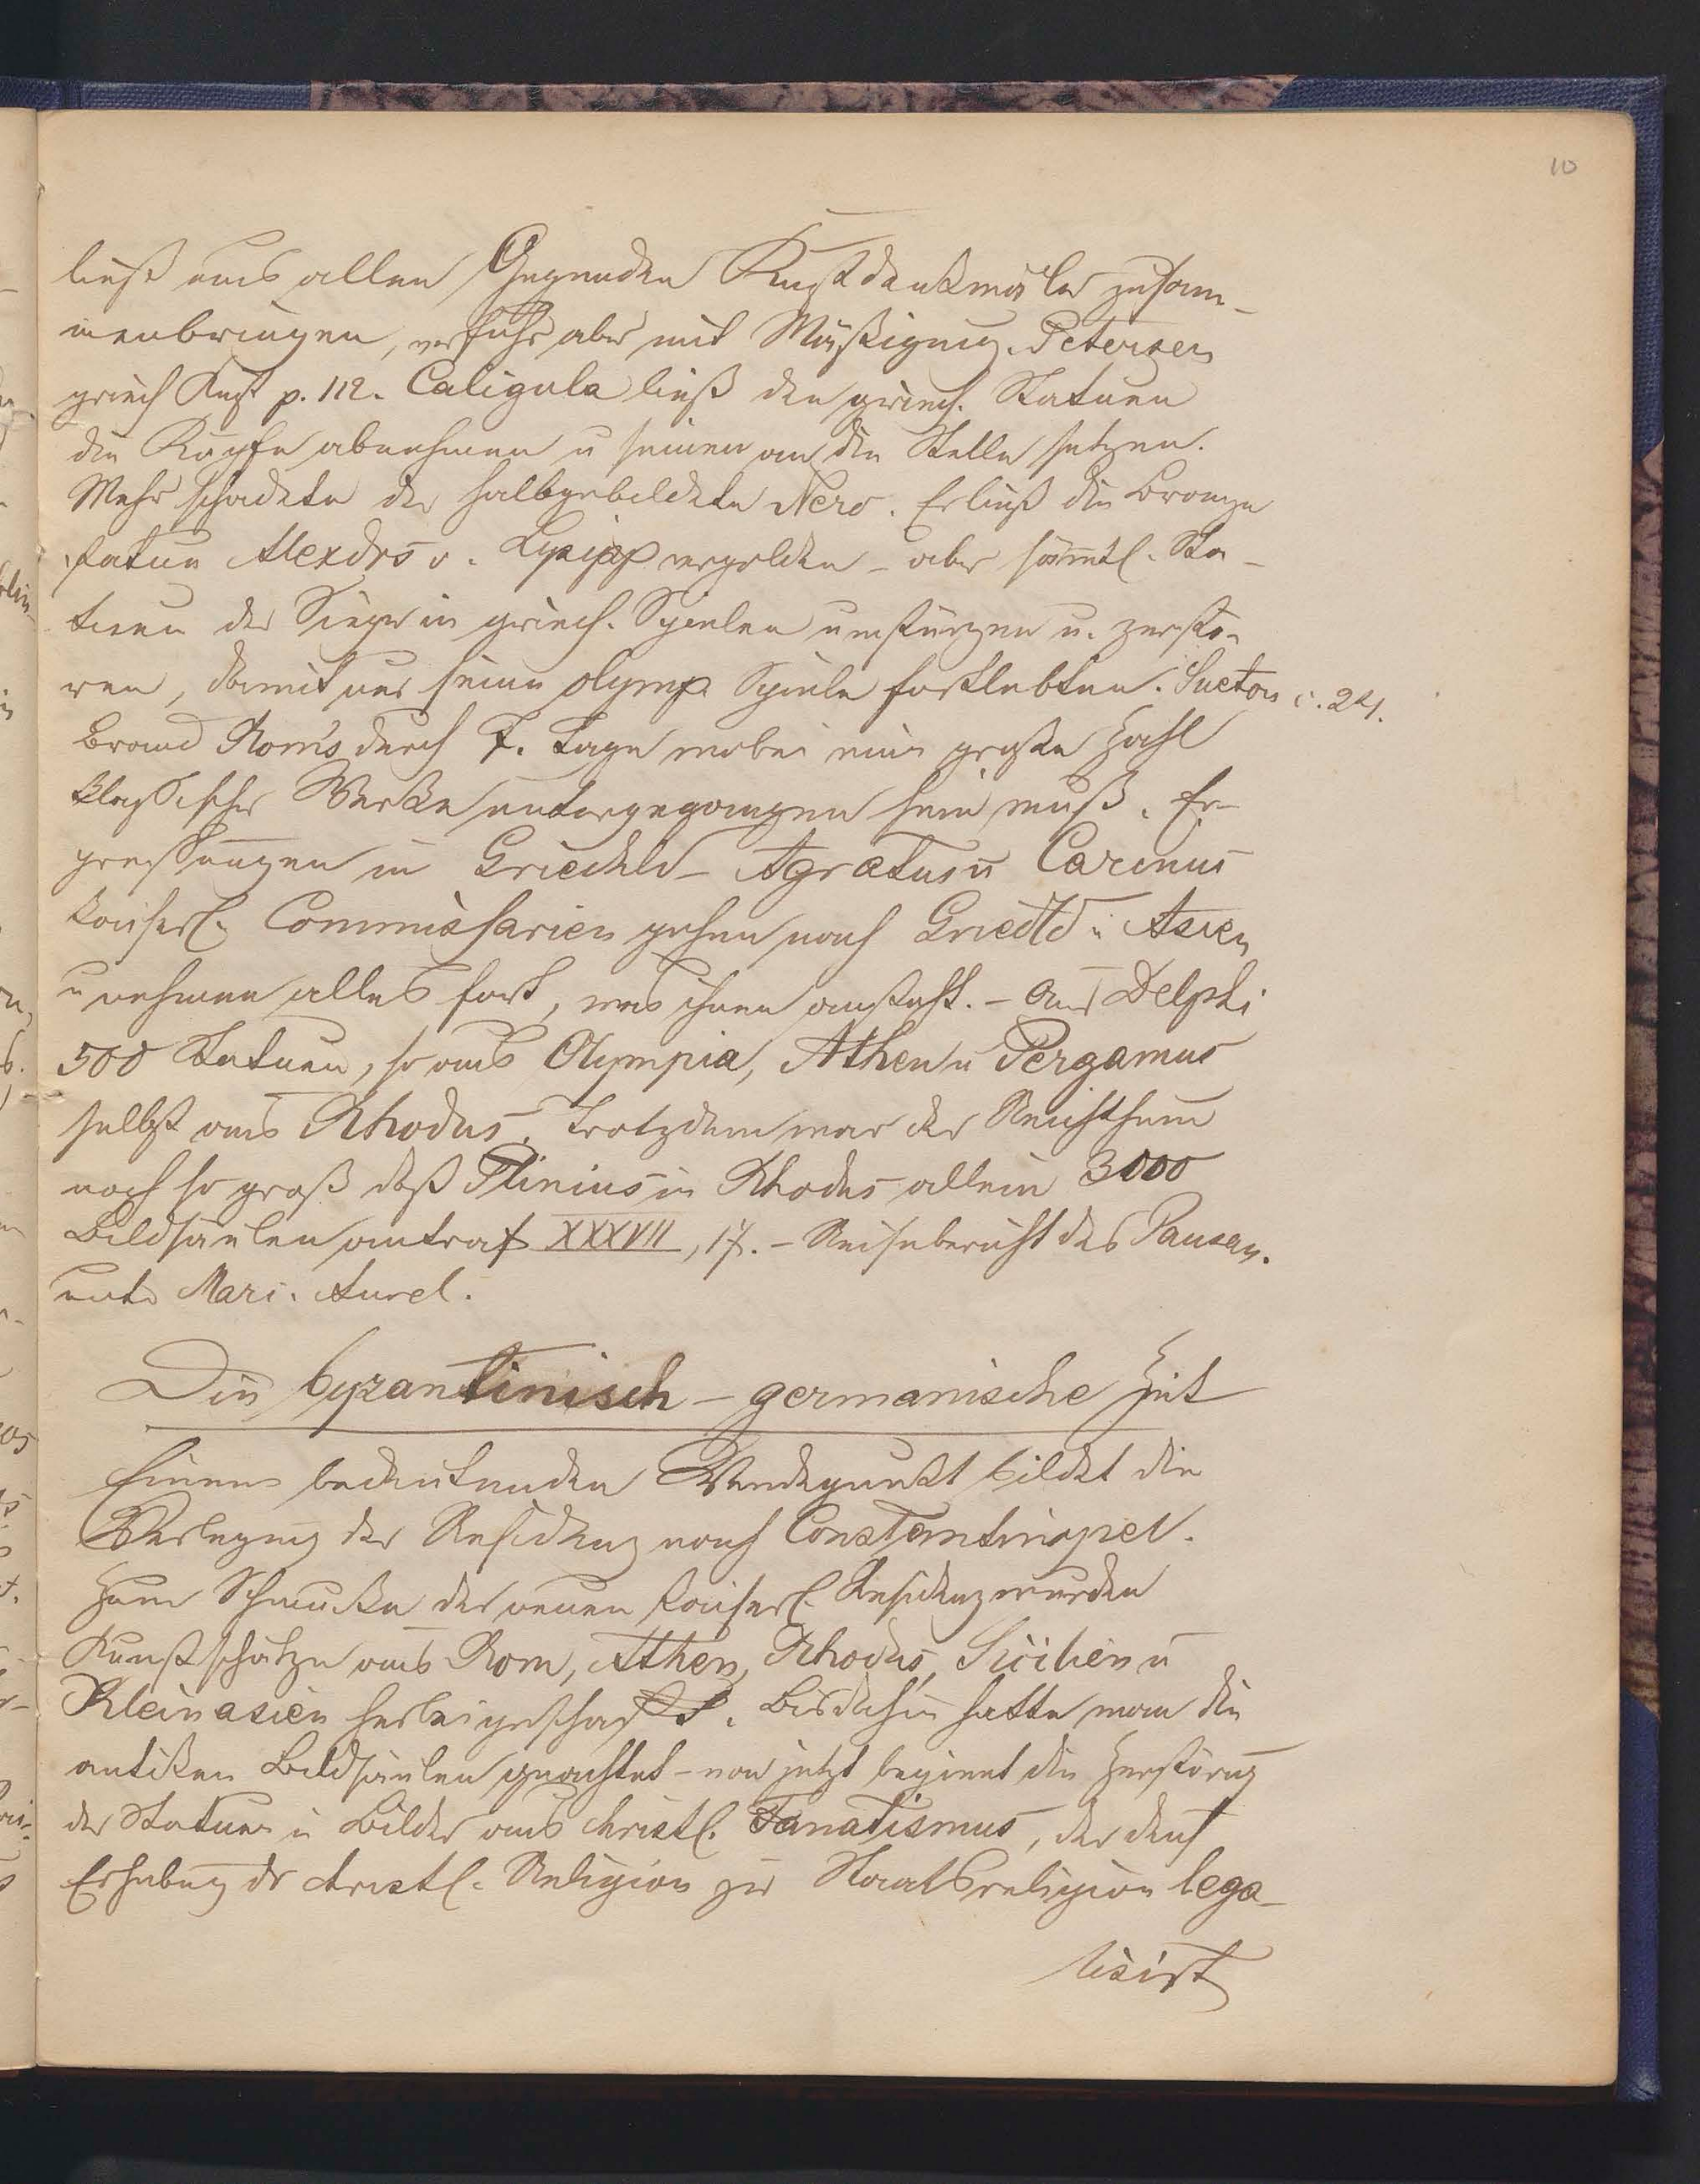 10
ließ aus allen Gegenden Kunstdenkmäler zusam-
menbringen, verfuhr aber mit Mäßigung. Petersen
griech Kunst p. 112. Caligula ließ den griech. Statuen
die Köpfe abnehmen u seinen an die Stelle setzen.
Mehr schadete der halbgebildete Nero. Er ließ die Bronze
statue Alexdrs v. Lysipp vergolden – aber sämtl. Sta-
tuen der Sieger in griech. Spielen umstürzen u. zerstö-
ren, damit nur seine olymp. Spiele fortlebten. Sueton c. 24.
Brand Rom's durch 7. Tage wobei eine große Zahl
klassischer Werke untergegangen sein muß. Er-
pressungen in Griechld – Agratus u Carinus
kaiserl. Commissarien gehen nach Griechld u Asien
u nehmen alles fort, was ihnen ansteht. – Aus Delphi
500 Statuen, so aus Olympia, Athen u Pergamus
selbst aus Rhodus. Trotzdem war der Reichthum
noch so groß daß Plinius in Rhodus allein 3000
Bildsäulen antraf XXXVII, 17. – Reisebericht des Pausan.
unter Marc. Aurel.
Die byzantinisch – germanische Zeit
Einen bedeutenden Wendepunkt bildet die
Verlegung der Residenz nach Constantinopel.
Zum Schmucke der neuen kaiserl. Residenz wurden
Kunstschätze aus Rom, Athen, Rhodus, Sicilien u
Kleinasien herbeigeschafft. Bis dahin hatte man die
antiken Bildsäulen geachtet – von jetzt beginnt die Zerstörung
der Statuen u Bilder aus christl. Fanatismus, der durch
Erhebung dr christl. Religion zur Staatsreligion lega-
lisirt